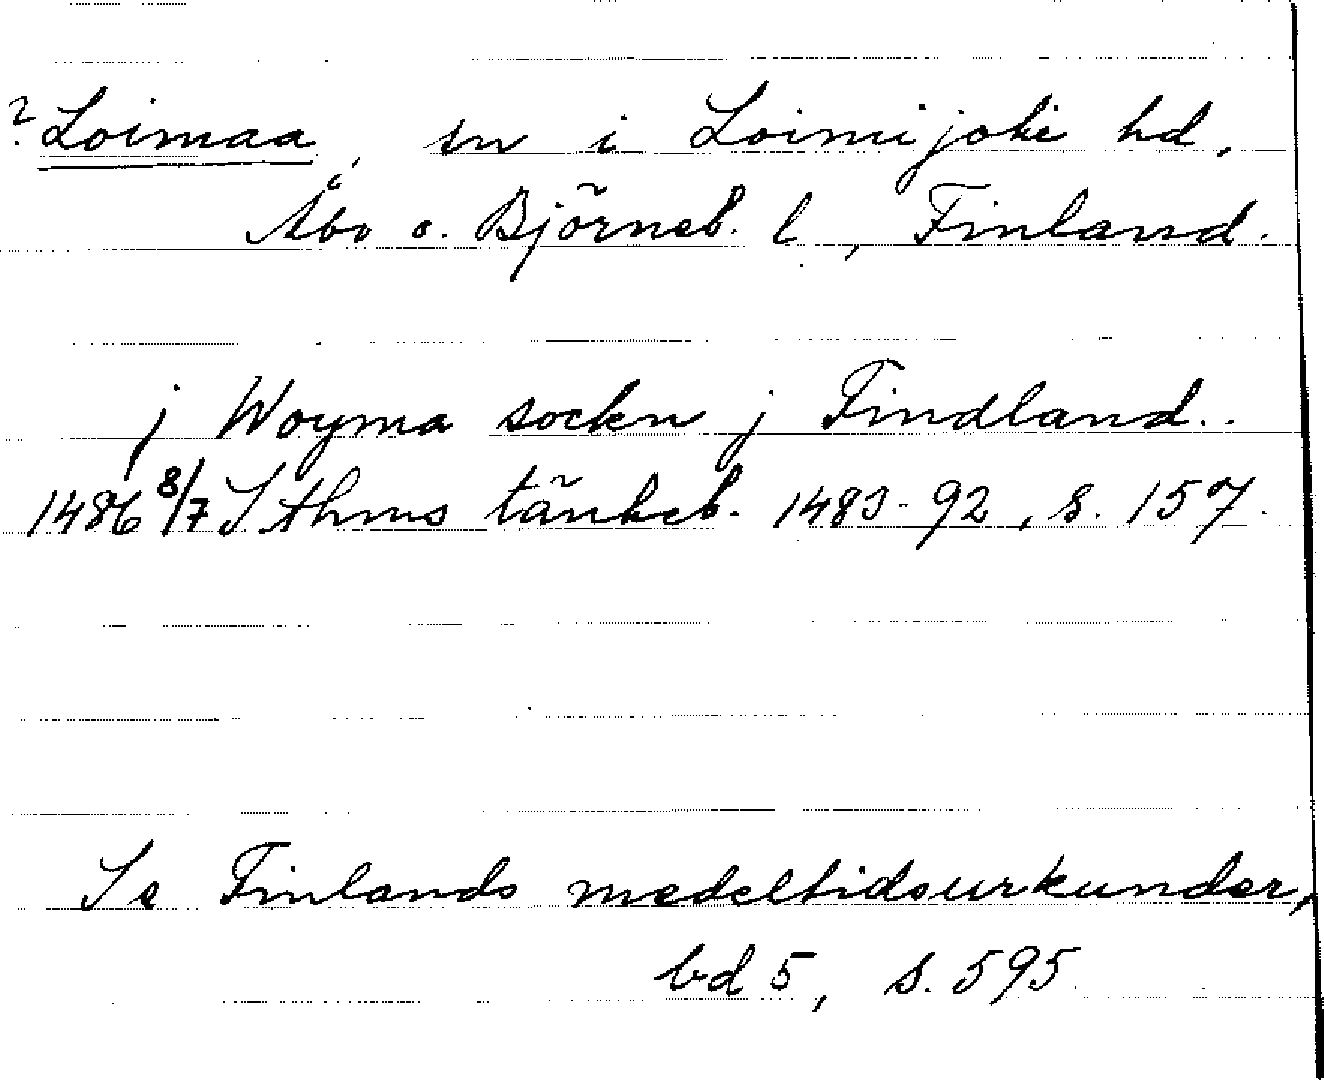 ? Loimaa, sn i Loimijoki hd,
Åbo o. Björneb. l, Finland.
j Woyma sockn j Findland..
1486 8/7 Sthms tänkeb. 1483-92, s. 157.
Se Finlands medeltidsurkunder,
bd 5, s. 595